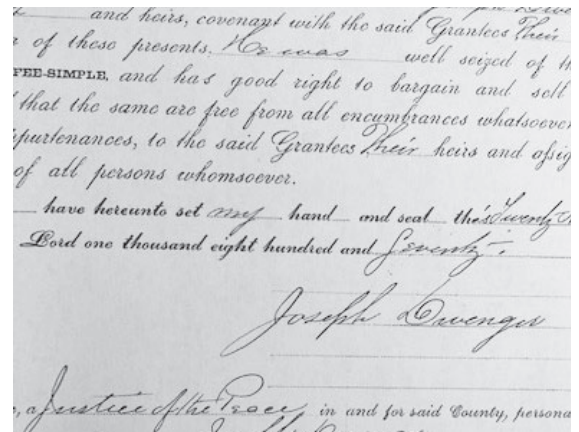 and heirs, covenant with the said Grantees Their
of these presents. He was well seized of th
FEE-SIMPLE, and has good right to bargain and sell
that the same are free from all encumbrances whatsoever
ppurtenances, to the said Grantees Their heirs and assig
of all persons whomsoever.
have hereunto set my hand and seal this Twenty
Lord one thousand eight hundred and Seventy.
Joseph Dwenger
, a Justice of the Peace in and for said County, persona